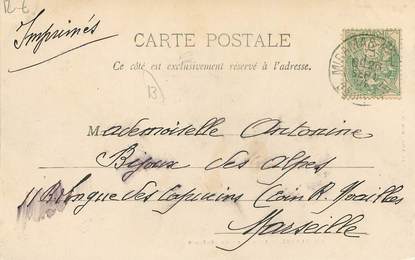 R-6
Imprimés
CARTE POSTALE
Ce côté est exclusivement réservé à l'adresse.
B
Mademoiselle Antonine
Bijoux des Alpes
11 R. longue des Capucins (Coin R. Noailles
Marseille